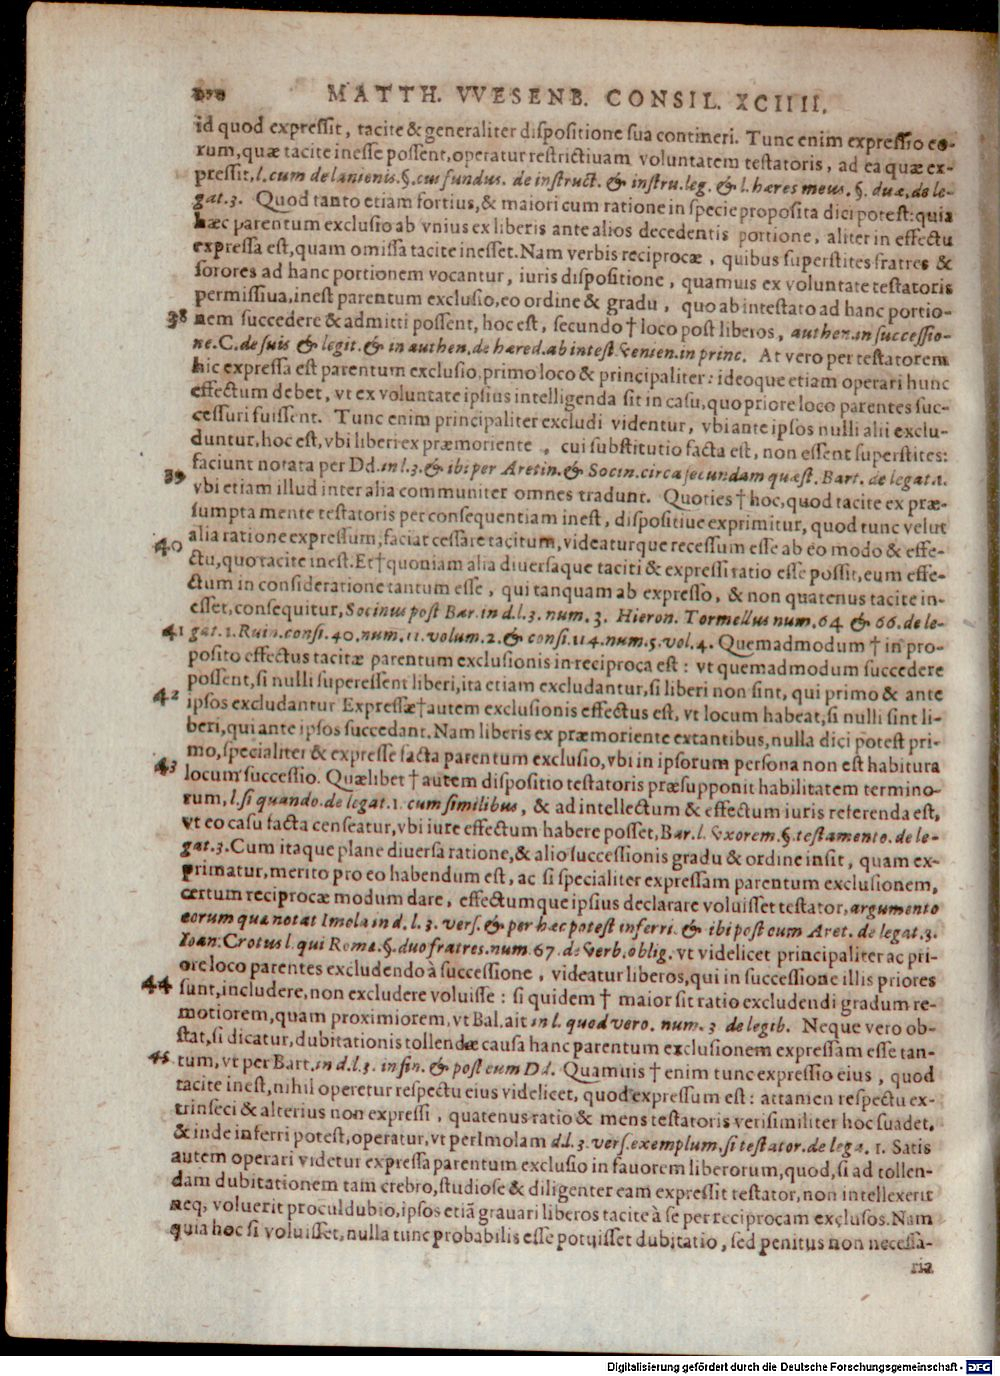 MATTH. VVESENB. CONSIL. XCIIII.
id quod expressit, tacite & generaliter dispositione sua contineri. Tunc enim expressio eo-
rum, quæ tacite inesse possent, operatur restrictiuam voluntatem testatoris, ad ea quæ ex-
pressit, l. cum de lanionis. §. cui fundus. de instruct. & instru. leg. & l. hæres meus. §. duæ, de le-
gat. 3. Quod tanto etiam fortius, & maiori cum ratione in specie proposita dici potest: quia
hæc parentum exclusio ab vnius ex liberis ante alios decedentis portione, aliter in effectu
expressa est, quam omissa tacite inesset. Nam verbis reciprocæ, quibus superstites fratres &
sorores ad hanc portionem vocantur, iuris dispositione, quamuis ex voluntate testatoris
permissiua, inest parentum exclusio, eo ordine & gradu, quo ab intestato ad hanc portio-
38 nem succedere & admitti possent, hoc est, secundo † loco post liberos, authen. in successio-
ne. C. de suis & legit. & in authen. de hæred. ab intest. venien. in princ. At vero per testatorem
hic expressa est parentum exclusio, primo loco & principaliter: ideoque etiam operari hunc
effectum debet, vt ex voluntate ipsius intelligenda sit in casu, quo priore loco parentes suc-
cessuri fuissent. Tunc enim principaliter excludi videntur, vbi ante ipsos nulli alii exclu-
duntur, hoc est, vbi liberi ex præmoriente, cui substitutio facta est, non essent superstites:
faciunt notata per Dd. in l. 3. & ibi per Aretin. & Socin. circa secundam quæst. Bart. de legat. 1.
39 vbi etiam illud inter alia communiter omnes tradunt. Quoties † hoc, quod tacite ex præ-
sumpta mente testatoris per consequentiam inest, dispositiue exprimitur, quod tunc velut
alia ratione expressum, faciat cessare tacitum, videaturque recessum esse ab eo modo & effe-
40 ctu, quo tacite inest. Et † quoniam alia diuersaque taciti & expressi ratio esse possit, eum effe-
ctum in consideratione tantum esse, qui tanquam ab expresso, & non quatenus tacite in-
esset, consequitur, Socinus post Bar. in d. l. 3. num. 3. Hieron. Tormellus num. 64 & 66. de le-
41 gat. 1. Ruin. consi. 40. num. 11. volum. 2. & consi. 114. num. 5. vol. 4. Quemadmodum † in pro-
posito effectus tacitæ parentum exclusionis in reciproca est: vt quemadmodum succedere
possent, si nulli superessent liberi, ita etiam excludantur, si liberi non sint, qui primo & ante
42 ipsos excludantur Expressæ † autem exclusionis effectus est, vt locum habeat, si nulli sint li-
beri, qui ante ipsos succedant. Nam liberis ex præmoriente extantibus, nulla dici potest pri-
mo, specialiter & expresse facta parentum exclusio, vbi in ipsorum persona non est habitura
43 locum successio. Quælibet † autem dispositio testatoris præsupponit habilitatem termino-
rum, l. si quando. de legat. 1. cum similibus, & ad intellectum & effectum iuris referenda est,
vt eo casu facta censeatur, vbi iure effectum habere posset, Bar. l. vxorem. §. testamento. de le-
gat. 3. Cum itaque plane diuersa ratione, & alio successionis gradu & ordine insit, quam ex-
primatur, merito pro eo habendum est, ac si specialiter expressam parentum exclusionem,
certum reciprocæ modum dare, effectumque ipsius declarare voluisset testator, argumento
eorum quæ notat Imola in d. l. 3. vers. & per hæc potest inferri. & ibi post eum Aret. de legat. 3.
Ioan. Crotus l. qui Roma. §. duo fratres. num. 67. de verb. oblig. vt videlicet principaliter ac pri-
ore loco parentes excludendo à successione, videatur liberos, qui in successione illis priores
44 sunt, includere, non excludere voluisse: si quidem † maior sit ratio excludendi gradum re-
motiorem, quam proximiorem, vt Bal. ait in l. quod vero. num. 3 de legib. Neque vero ob-
stat, si dicatur, dubitationis tollendæ causa hanc parentum exclusionem expressam esse tan-
45 tum, vt per Bart. in d. l. 3. in fin. & post eum Dd. Quamuis † enim tunc expressio eius, quod
tacite inest, nihil operetur respectu eius videlicet, quod expressum est: attamen respectu ex-
trinseci & alterius non expressi, quatenus ratio & mens testatoris verisimiliter hoc suadet,
& inde inferri potest, operatur, vt per Imolam d. l. 3. vers. exemplum, si testator. de lega. 1. Satis
autem operari videtur expressa parentum exclusio in fauorem liberorum, quod, si ad tollen-
dam dubitationem tam crebro, studiose & diligenter eam expressit testator, non intellexerit
neq; voluerit proculdubio, ipsos etiã grauari liberos tacite à se per reciprocam exclusos. Nam
quia hoc si voluisset, nulla tunc probabilis esse potuisset dubitatio, sed penitus non necessa-
ria
Digitalisierung gefördert durch die Deutsche Forschungsgemeinschaft - DFG